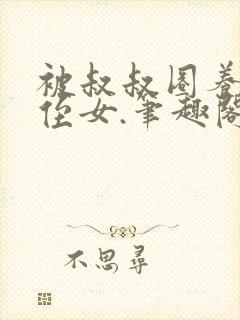 被叔叔圈养
侄女.笔趣阁
不思寻